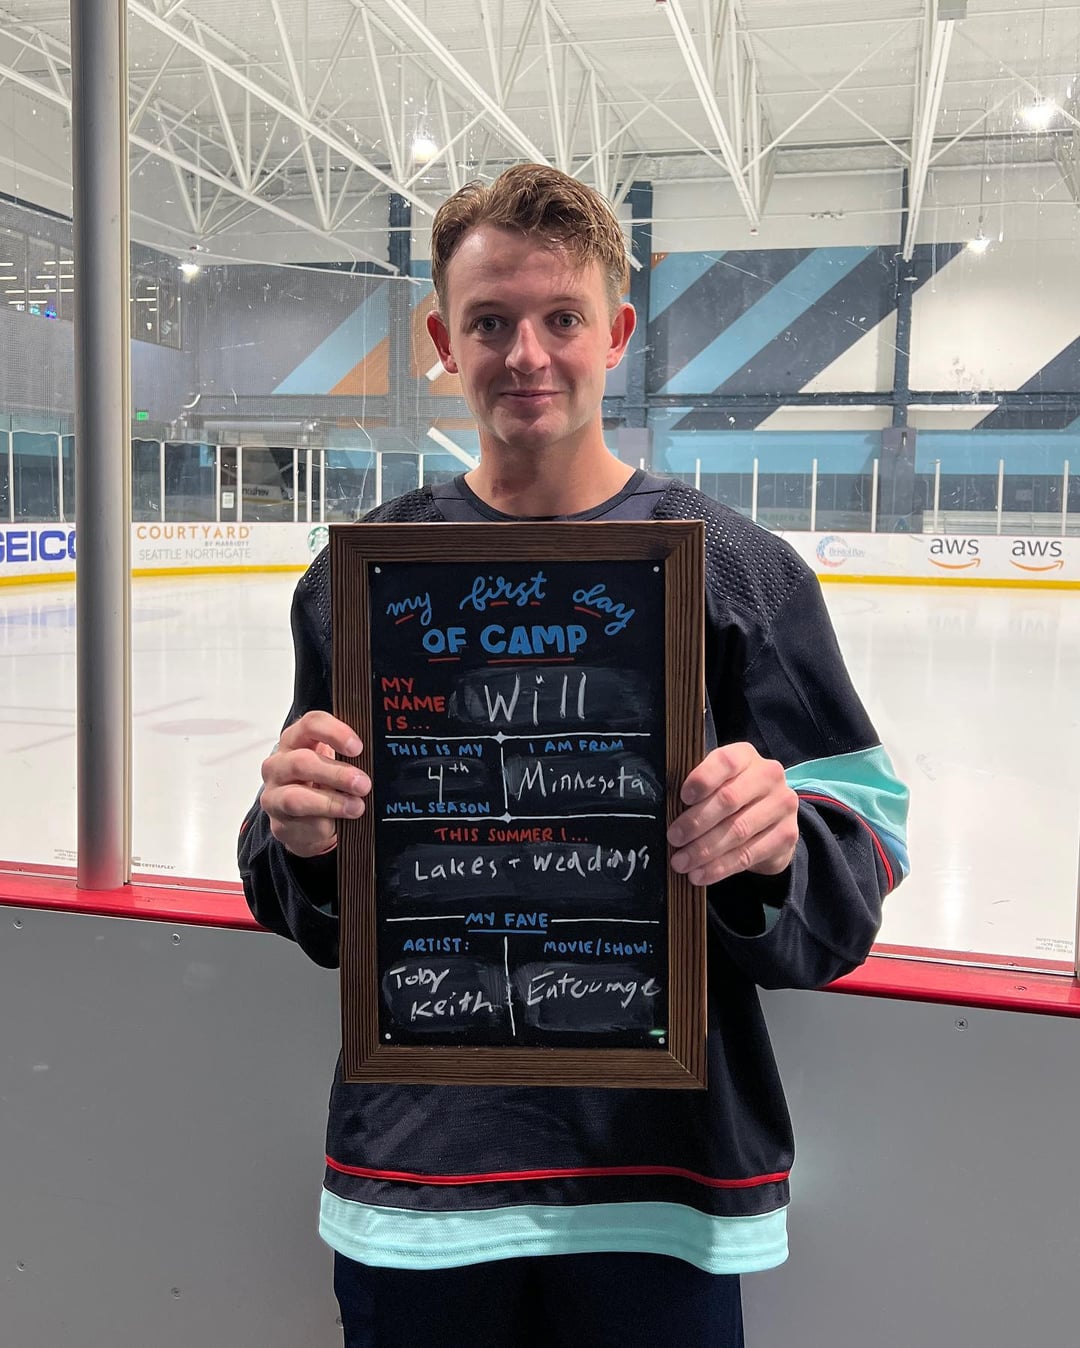 GEICO
COURTYARD
BY MARRIOTT
SEATTLE NORTHGATE
Bristol Bay
aws
aws
my first day
OF CAMP
MY
NAME
IS...
Will
THIS IS MY
4th
NHL SEASON
I AM FROM
Minnesota
THIS SUMMER I...
Lakes + Weddings
MY FAVE
ARTIST:
Toby
Keith
MOVIE/SHOW:
Entourage